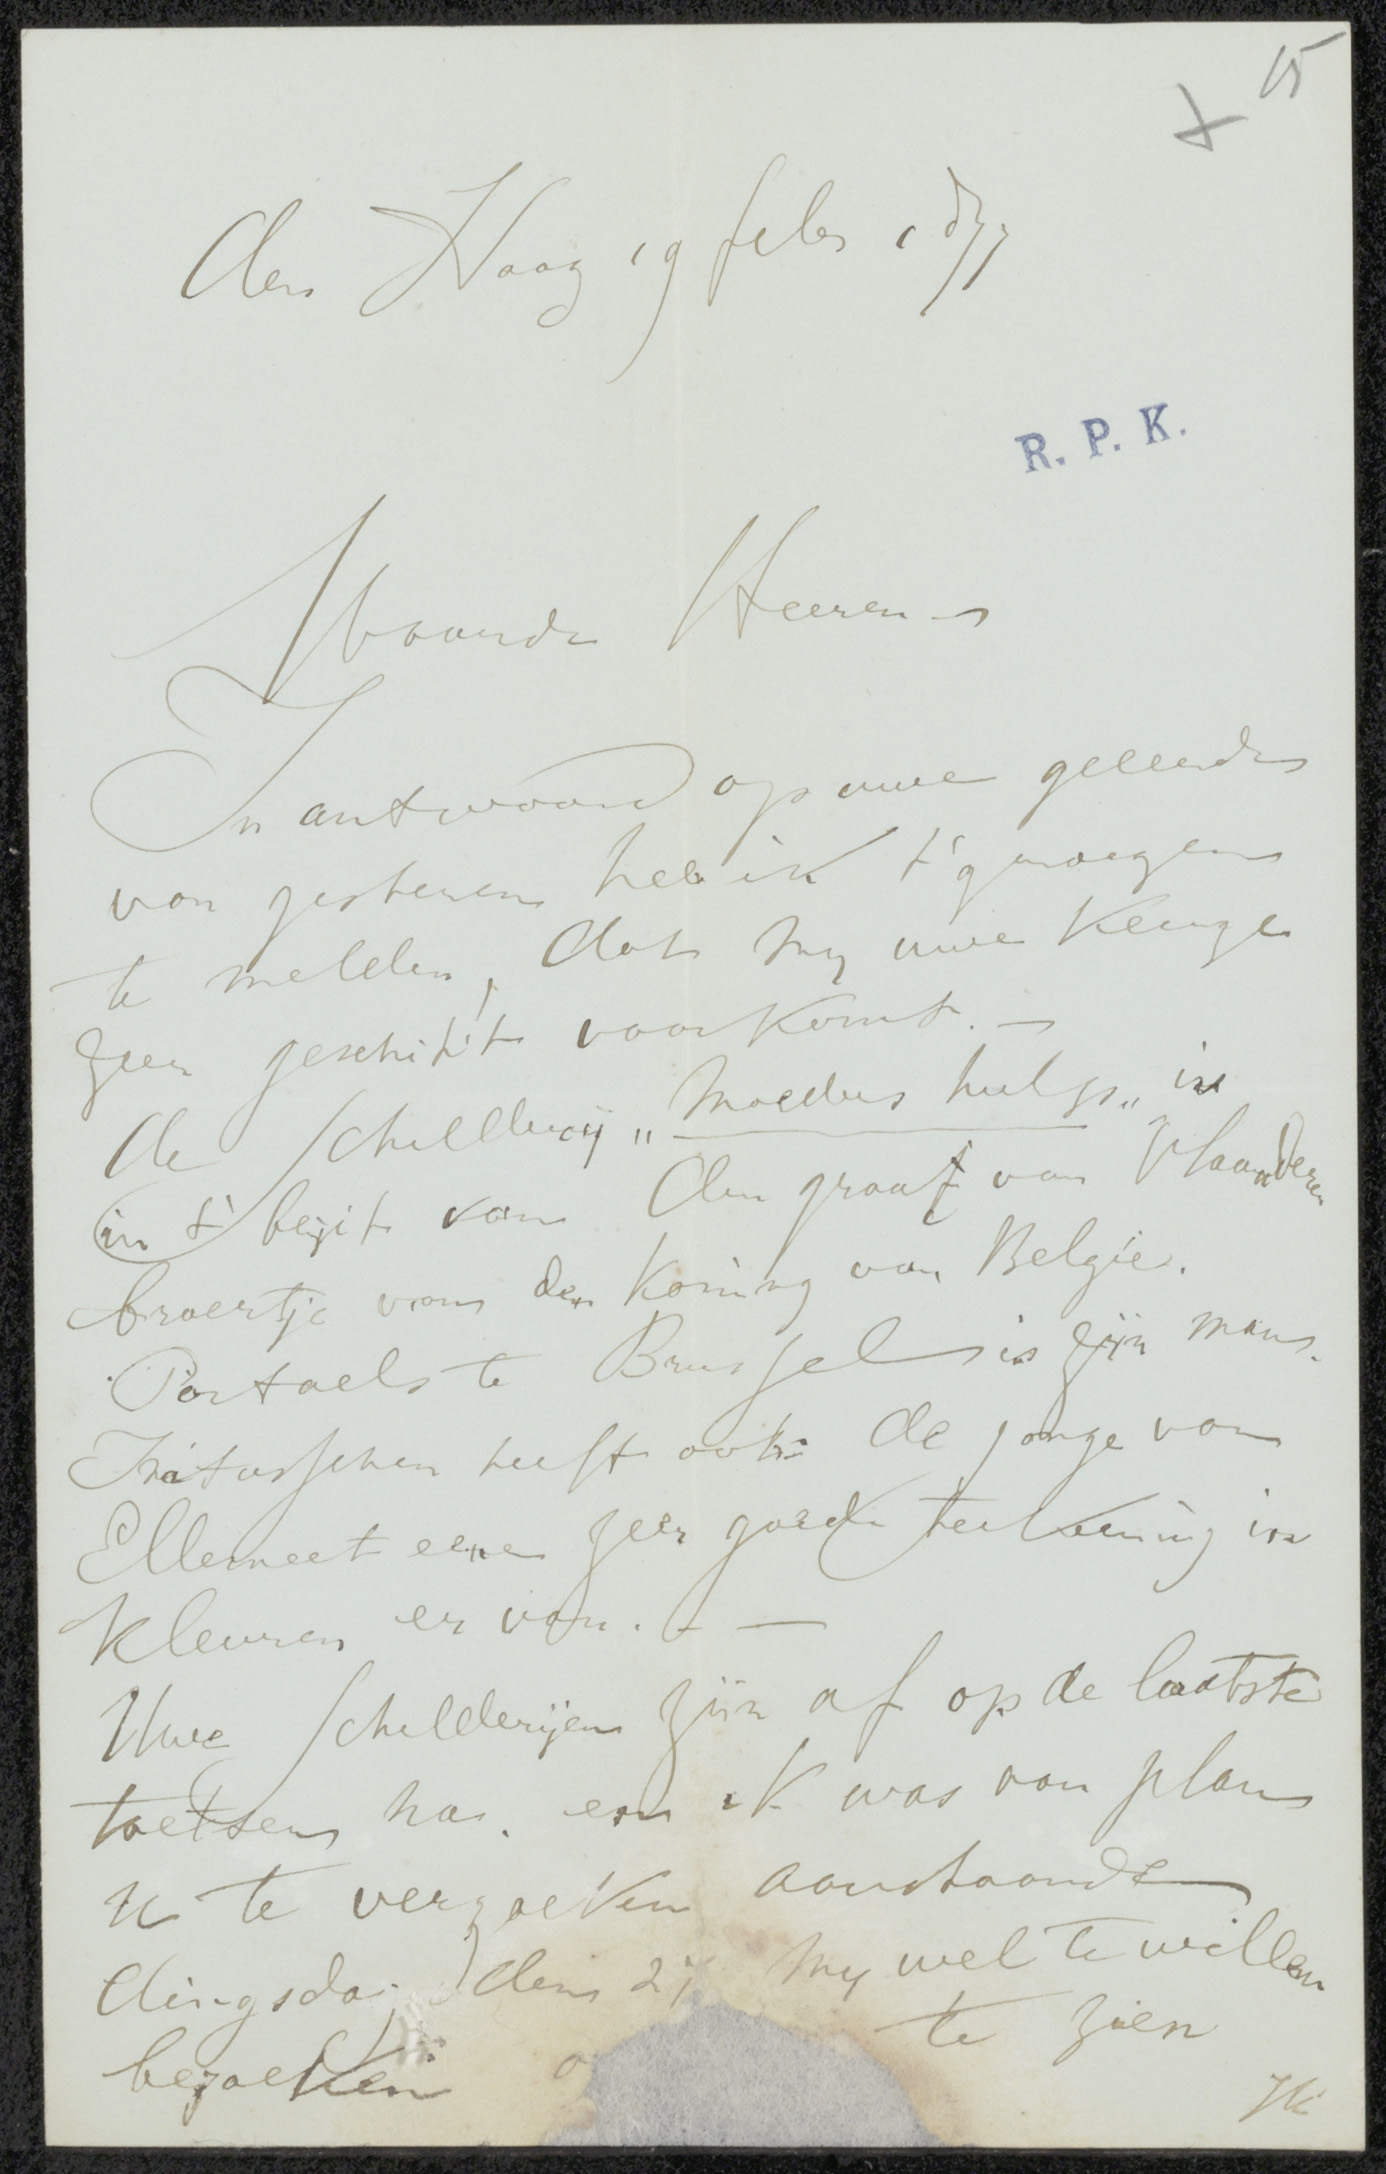 15
den Haag 19 febr 1877
R. P. K.
Waarde Heeren
In antwoord op uwe geeerde
van gisteren heb ik t'genoegen
te melden, dat my uwe keuze
zeer geschikt voorkomt. —
de Schilderij „Moeders hulp„ is
in t' bezit van den graaf van Vlaanderen
broertje van den Koning van Belgie.
Portaels te Brussel is zijn man.
Intusschen heeft ook de jonge van
Ellemeet eene zeer goede teekening in
kleuren er van. — —
Uwe Schilderijen zijn af op de laatste
toetsen na. en ik was van plan
U te verzoeken aanstaande
dingsdag den 27 my wel te willen
bezoeken o te zien